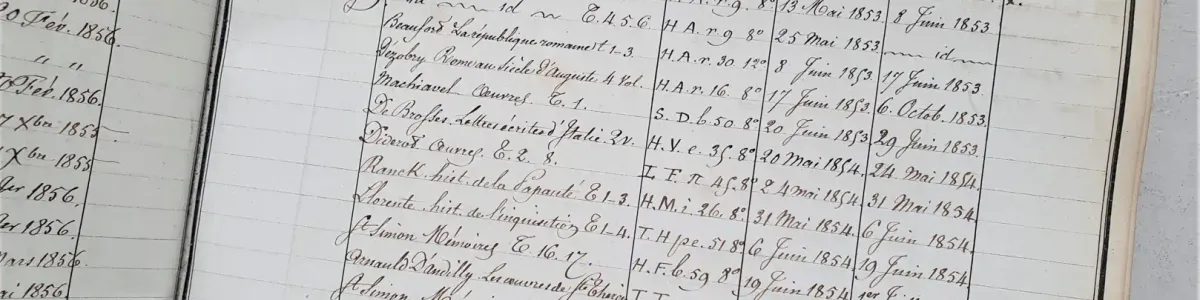 1856.
20 Fév. 1856.
" "
Fév. 1856.
Xbre 1855
Xbre 1855
1856.
1856.
Mars 1856.
1856.
A.r.9. 8° 13 Mai 1853. 8 Juin 1853.
id T. 4.5.6. H.A.r.9 8° 25 Mai 1853. id.
Beaufort La république romaine t 1-3 H.A.r.30.12° 8 Juin 1853. 17 Juin 1853.
Dezobry Rome au siècle d'Auguste 4 Vol. H.A.r.16. 8° 17 Juin 1853. 6. Octob. 1853.
Machiavel Œuvres. T. 1. S.D.b.50 8° 20 Juin 1853. 29 Juin 1853.
De Brosses. Lettres écrites d'Italie. 2v. H.V.e.35.8° 20 Mai 1854. 24 Mai 1854.
Diderot Œuvres. T. 2. 8. I.F.π 45.8° 24 mai 1854. 31 Mai 1854.
Ranck. hist. de la Papauté. T 1-3. H.M.i.26.8° 31 Mai 1854. 6 Juin 1854.
Llorente hist. de l'inquisition T 1-4. T.H pe.51 8° 6 Juin 1854. 19 Juin 1854.
St Simon Mémoires T. 16.17. H.F.b.59 8° 19 Juin 1854.
Arnauld D'andilly Les œuvres de Ste Thérèse
St Simon